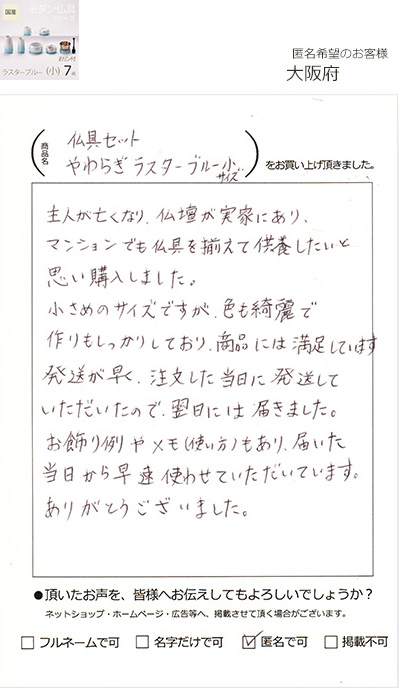 国産
モダン仏具
おリン付
ラスターブルー (小) 7
匿名希望のお客様
大阪府
商品名
仏具セット
やわらぎ ラスターブルー小サイズ
をお買い上げ頂きました。
主人が亡くなり、仏壇が実家にあり、
マンションでも仏具を揃えて供養したいと
思い購入しました。
小さめのサイズですが、色も綺麗で
作りもしっかりしており、商品には満足しています
発送が早く、注文した当日に発送して
いただいたので、翌日には届きました。
お飾り例やメモ(使い方)もあり、届いた
当日から早速使わせていただいています。
ありがとうございました。
●頂いたお声を、皆様へお伝えしてもよろしいでしょうか?
ネットショップ・ホームページ・広告等へ、掲載させて頂く場合がございます。
□ フルネームで可 □ 名字だけで可 ☑ 匿名で可 □ 掲載不可